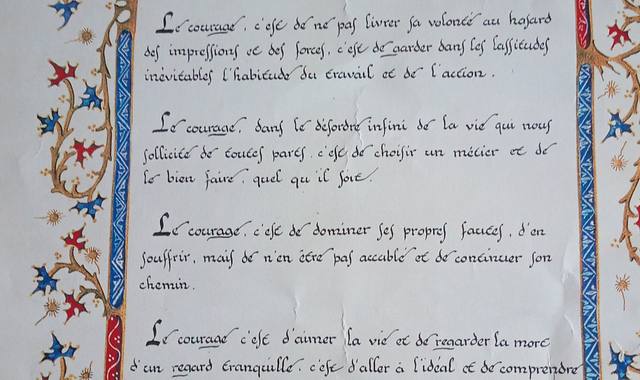 Le courage, c'est de ne pas livrer sa volonté au hasard
des impressions et des forces, c'est de garder dans les lassitudes
inévitables l'habitude du travail et de l'action.
Le courage, dans le désordre infini de la vie qui nous
sollicite de toutes parts, c'est de choisir un métier et de
le bien faire, quel qu'il soit.
Le courage, c'est de dominer ses propres fautes, d'en
souffrir, mais de n'en être pas accablé et de continuer son
chemin.
Le courage c'est d'aimer la vie et de regarder la mort
d'un regard tranquille, c'est d'aller à l'idéal et de comprendre